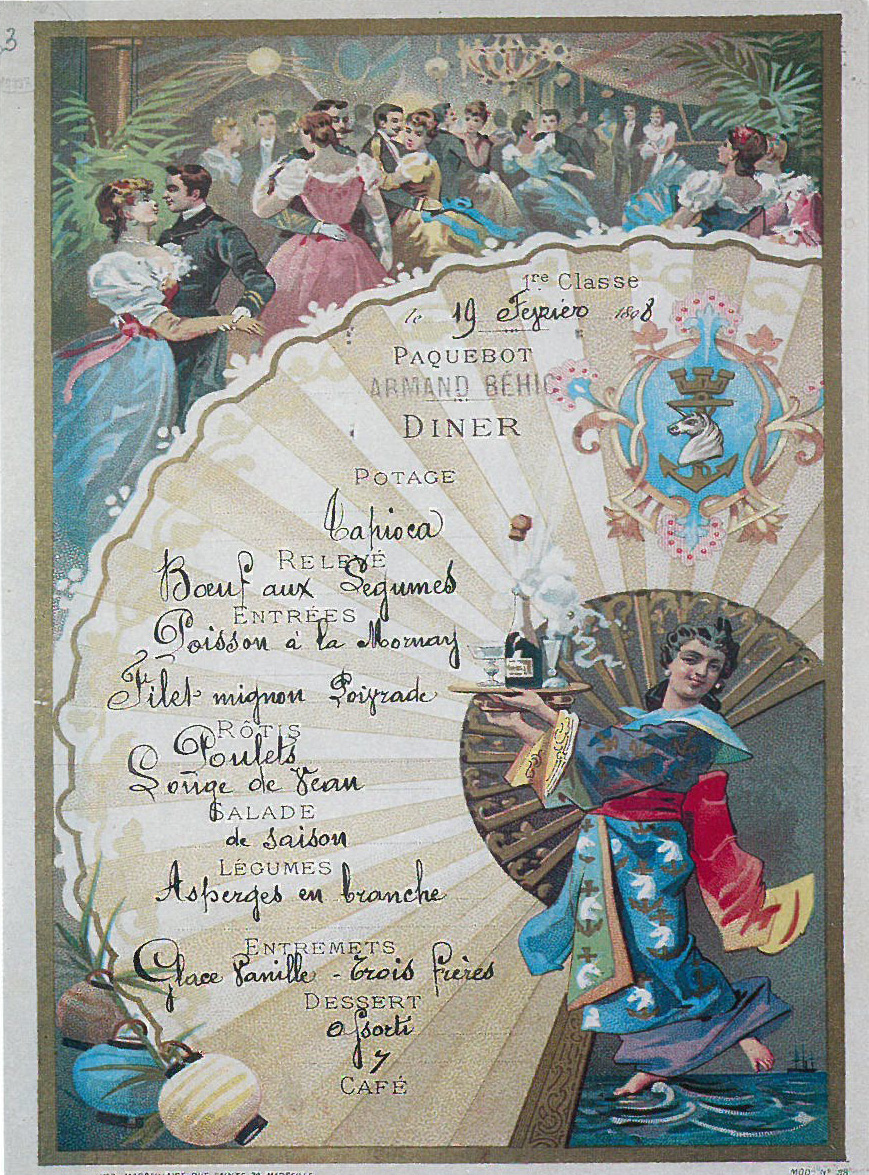 3
1re Classe
le 19 Fevrier 1898
PAQUEBOT
ARMAND BÉHIC
DINER
POTAGE
Tapioca
RELEVÉ
Bœuf aux Legumes
ENTRÉES
Poisson à la Mornay
Filet mignon Poivrade
RÔTIS
Poulets
Longe de Veau
SALADE
de saison
LÉGUMES
Asperges en branche
ENTREMETS
Glace Vanille - Trois frères
DESSERT
assorti
7
CAFÉ